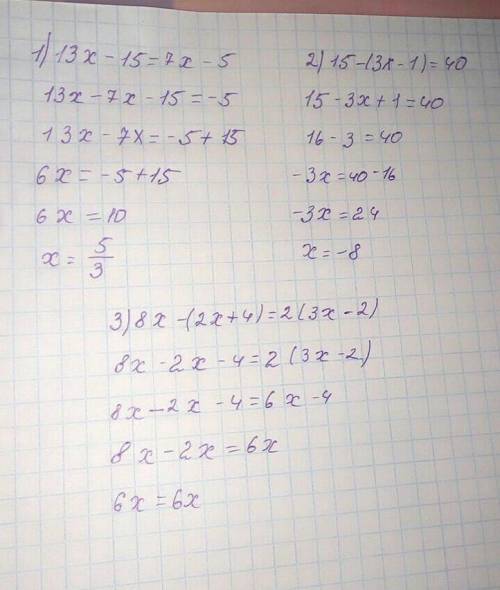 1) 13x - 15 = 7x - 5
13x - 7x - 15 = -5
13x - 7x = -5 + 15
6x = -5 + 15
6x = 10
x = 5/3
2) 15 - (3x - 1) = 40
15 - 3x + 1 = 40
16 - 3 = 40
-3x = 40 - 16
-3x = 24
x = -8
3) 8x - (2x + 4) = 2 (3x - 2)
8x - 2x - 4 = 2 (3x - 2)
8x - 2x - 4 = 6x - 4
8x - 2x = 6x
6x = 6x